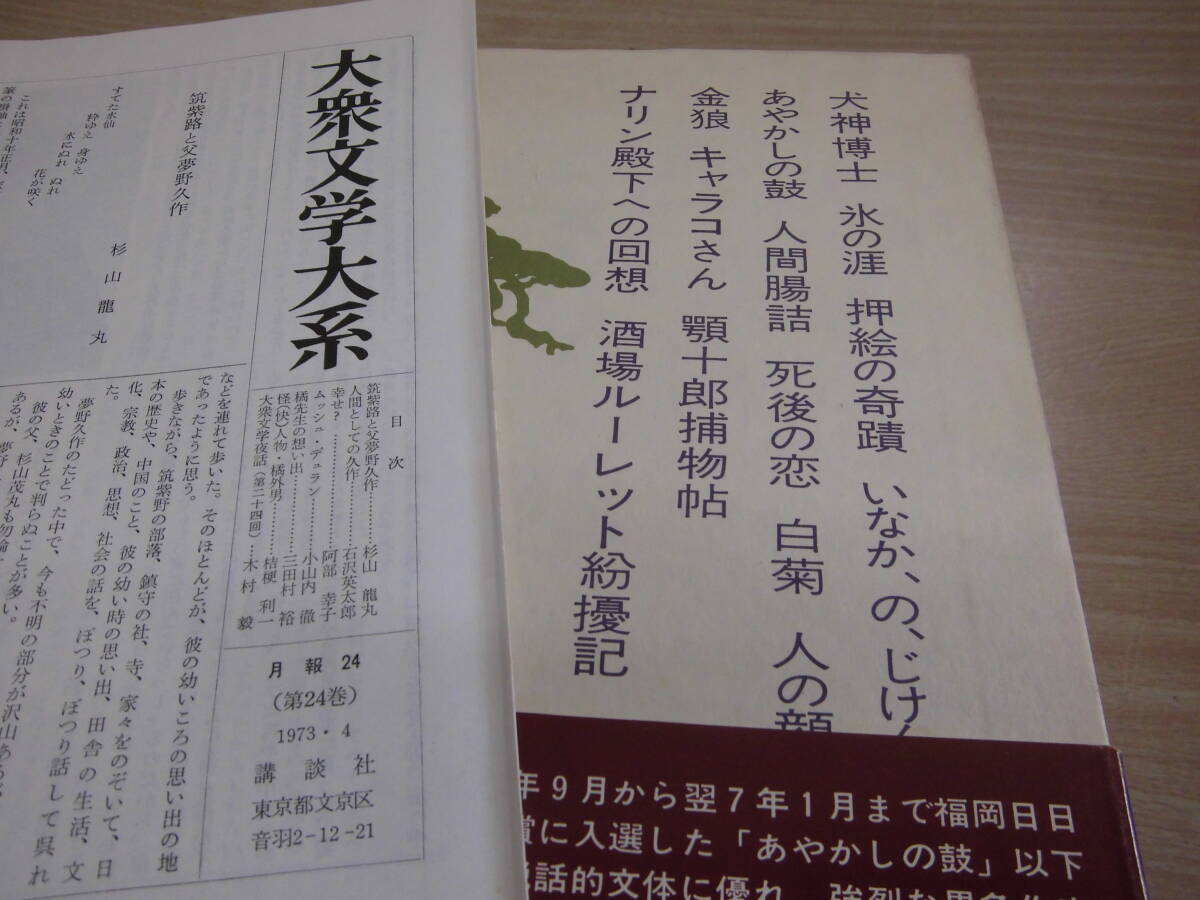 大衆文学大系
筑紫路と父夢野久作
杉山龍丸
すてた水仙
粋ゆえ 身ゆえ
水にぬれ ぬれ
花が咲く
これは昭和十年正月、
目次
筑紫路と父夢野久作…………杉山龍丸
人間としての久作…………石沢英太郎
幸せ？…………阿部幸子
ムッシュ・デュラン…………小山内徹
橘先生の想い出…………三田村裕
怪（快）人物・橘外男…………桔梗利一
大衆文学夜話（第二十四回）…木村毅
月報24
（第24巻）
1973・4
講談社
東京都文京区
音羽2-12-21
などを連れて歩いた。そのほとんどが、彼の幼いころの思い出の地
であったように思う。
歩きながら、筑紫野の部落、鎮守の社、寺、家々をのぞいて、日
本の歴史や、中国のこと、彼の幼い時の思い出、田舎の生活、文
化、宗教、政治、思想、社会の話を、ぽつり、ぽつり話して呉れ
た。
夢野久作のたどった中で、今も不明の部分が沢山あるが
幼いときのことで判らぬことが多い。
彼の父、杉山茂丸も勿論
あるが、夢野
犬神博士 氷の涯 押絵の奇蹟 いなか、の、じけん
あやかしの鼓 人間腸詰 死後の恋 白菊 人の顔
金狼 キャラコさん 顎十郎捕物帖
ナリン殿下への回想 酒場ルーレット紛擾記
年9月から翌7年1月まで福岡日日
賞に入選した「あやかしの鼓」以下
説話的文体に優れ、強烈な